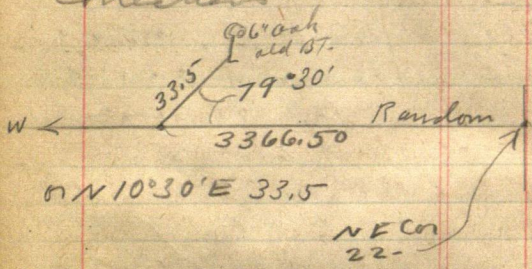 6" Oak
old BT.
33.5
79°30'
W
Random
3366.50
or N 10°30' E 33.5
NE Cor
22-